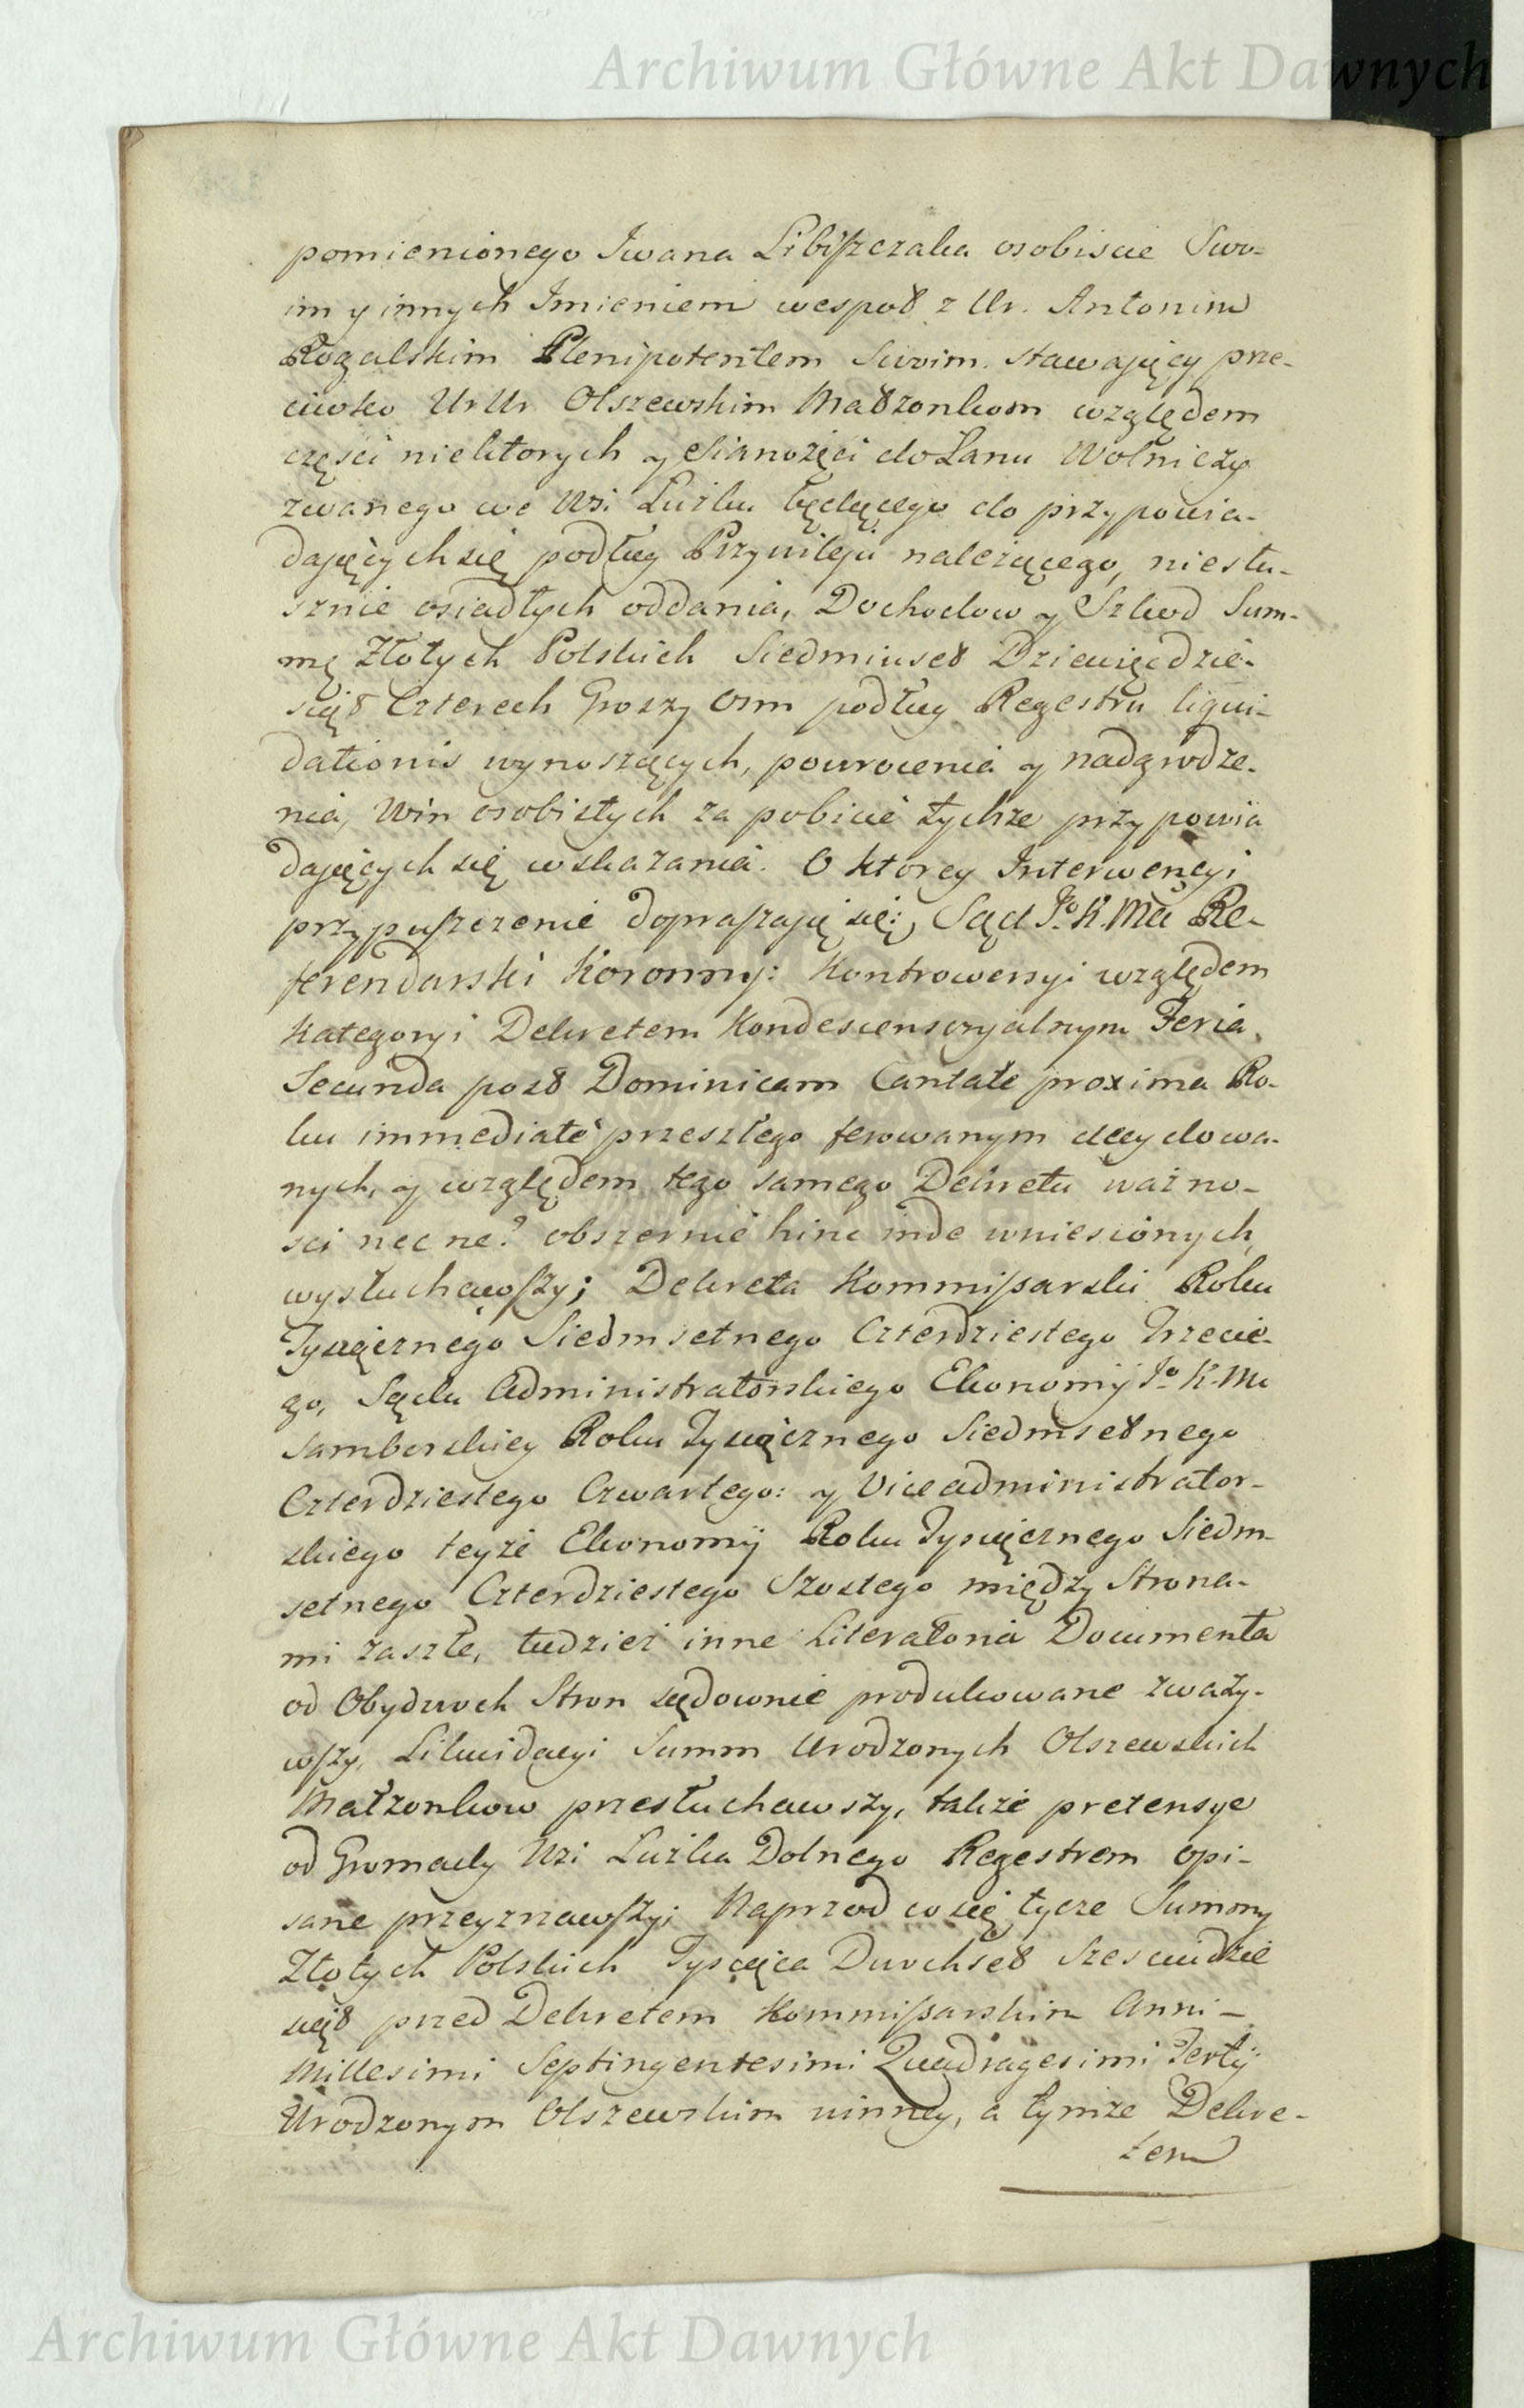 Archiwum Główne Akt Dawnych
pomienionego Iwana Libiszczaka osobiscie Swo-
im y innych Imieniem wespoł z Ur. Antonim
Rogalskim Plenipotentem swoim. stawaiący prze-
ciwko UrUr Olszewskim Małżonkom względem
części niektorych y Sianożęci do Łanu Wolniczy
zwanego we Wsi Lużku będącego do przypowia-
daiących się podług Przywileju należącego, niesłu-
sznie osiadłych oddania, Dochodow y Szkod Sum-
mę Złotych Polskich Siedmiuset Dziewięćdzie-
siąt Czterech Groszy Osm podług Regestru liqui-
dationis wynoszących, powrocenia y nadgrodze-
nia, Win osobistych za pobicie tychże przypowia
daiących się wskazania. O ktorey Interwencyi
przypuszczenie dopraszaią się; Sąd Jo. K. Mci Re-
ferendarski Koronny: Kontrowersyi względem
Kategoryi Dekretem Kondescensoryalnym Feria
Secunda post Dominicam Cantate proxima Ro-
ku immediate przeszłego ferowanym decydowa-
nych, y względem tego samego Dekretu ważno-
sci nec ne? obszernie hinc inde wniesionych,
wysłuchawszy; Dekreta Kommissarski Roku
Tysiącznego Siedmsetnego Czterdziestego Trzecie-
go, Sądu Administratorskiego Ekonomij Jo K. Mci
Samborskiey Roku Tysiącznego Siedmsetnego
Czterdziestego Czwartego: y Viceadministrator-
skiego teyże Ekonomij Roku Tysiącznego Siedm-
setnego Czterdziestego Szostego między Strona-
mi zaszłe, tudzież inne Literatoria Documenta
od Obydwoch Stron sądownie produkowane zważy-
wszy, Likwidacyi Summ Urodzonych Olszewskich
Małzonkow przesłuchawszy, także pretensye
od Gromady Wsi Lużka Dolnego Regestrem opi-
sane przeyrzawszy; Naprzod co się tycze Summy
Złotych Polskich Tysiąca Dwochset Szesciudzie
siąt przed Dekretem Kommissarskim Anni-
Millesimi Septingentesimi Quadragesimi Tertij
Urodzonym Olszewskim winney, a tymże Dekre-
tem
Archiwum Główne Akt Dawnych